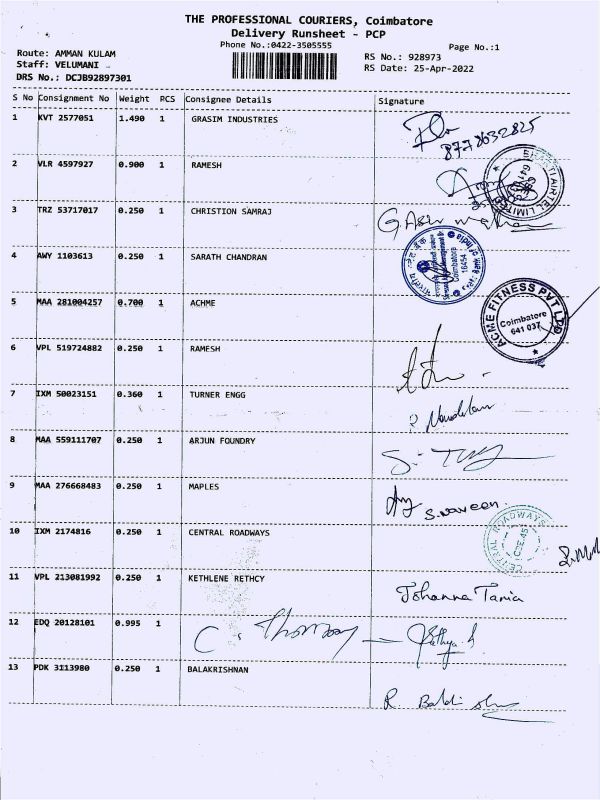 THE PROFESSIONAL COURIERS, Coimbatore
Delivery Runsheet - PCP
Phone No.:0422-3505555
Page No.:1
Route: AMMAN KULAM
RS No.: 928973
Staff: VELUMANI
RS Date: 25-Apr-2022
DRS No.: DCJB92897301
S No Consignment No Weight PCS Consignee Details Signature
1 KVT 2577051 1.490 1 GRASIM INDUSTRIES
8778632825
2 VLR 4597927 0.900 1 RAMESH
BHARTI AIRTEL LIMITED
3 TRZ 53717017 0.250 1 CHRISTION SAMRAJ
4 AWY 1103613 0.250 1 SARATH CHANDRAN
Coimbatore
5 MAA 281004257 0.700 1 ACHME
ACME FITNESS PVT LTD
Coimbatore
641 037
6 VPL 519724882 0.250 1 RAMESH
7 IXM 50023151 0.360 1 TURNER ENGG
8 MAA 559111707 0.250 1 ARJUN FOUNDRY
9 MAA 276668483 0.250 1 MAPLES
S. Naveen.
10 IXM 2174816 0.250 1 CENTRAL ROADWAYS
CENTRAL ROADWAYS
CBE.45
11 VPL 213081992 0.250 1 KETHLENE RETHCY
Johanna Tania
12 EDQ 20128101 0.995 1
C. Thomson
13 PDK 3113980 0.250 1 BALAKRISHNAN